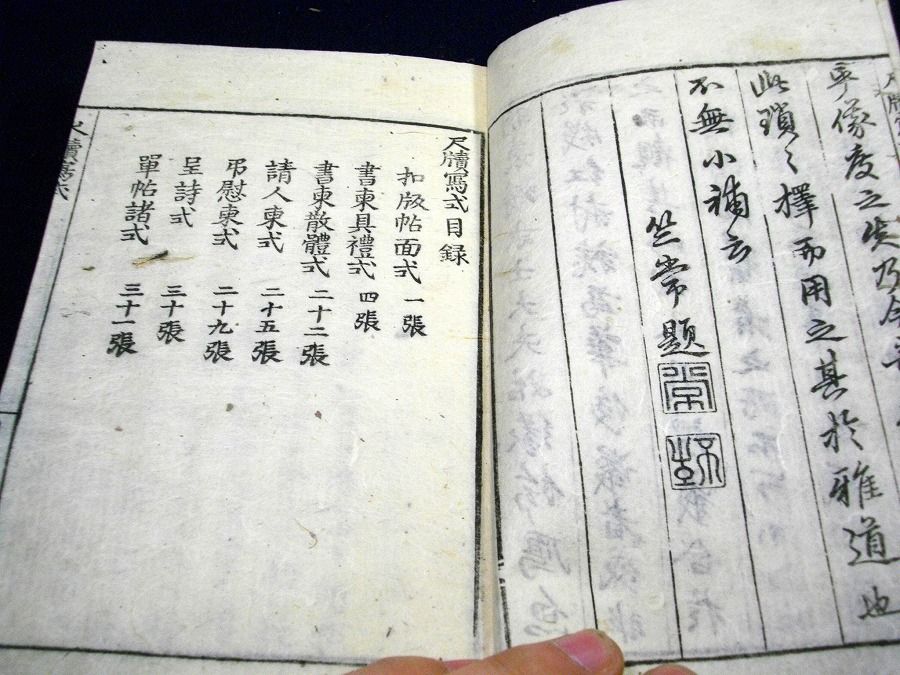 度之失乃今
此瑣々擇而用之其於雅道也
不無小補云
竺常題
尺牘寫式目録
扣版帖面式 一張
書柬具禮式 四張
書柬散體式 二十二張
請人柬式 二十五張
弔慰柬式 二十九張
呈詩式 三十張
單帖諸式 三十一張
尺牘寫式